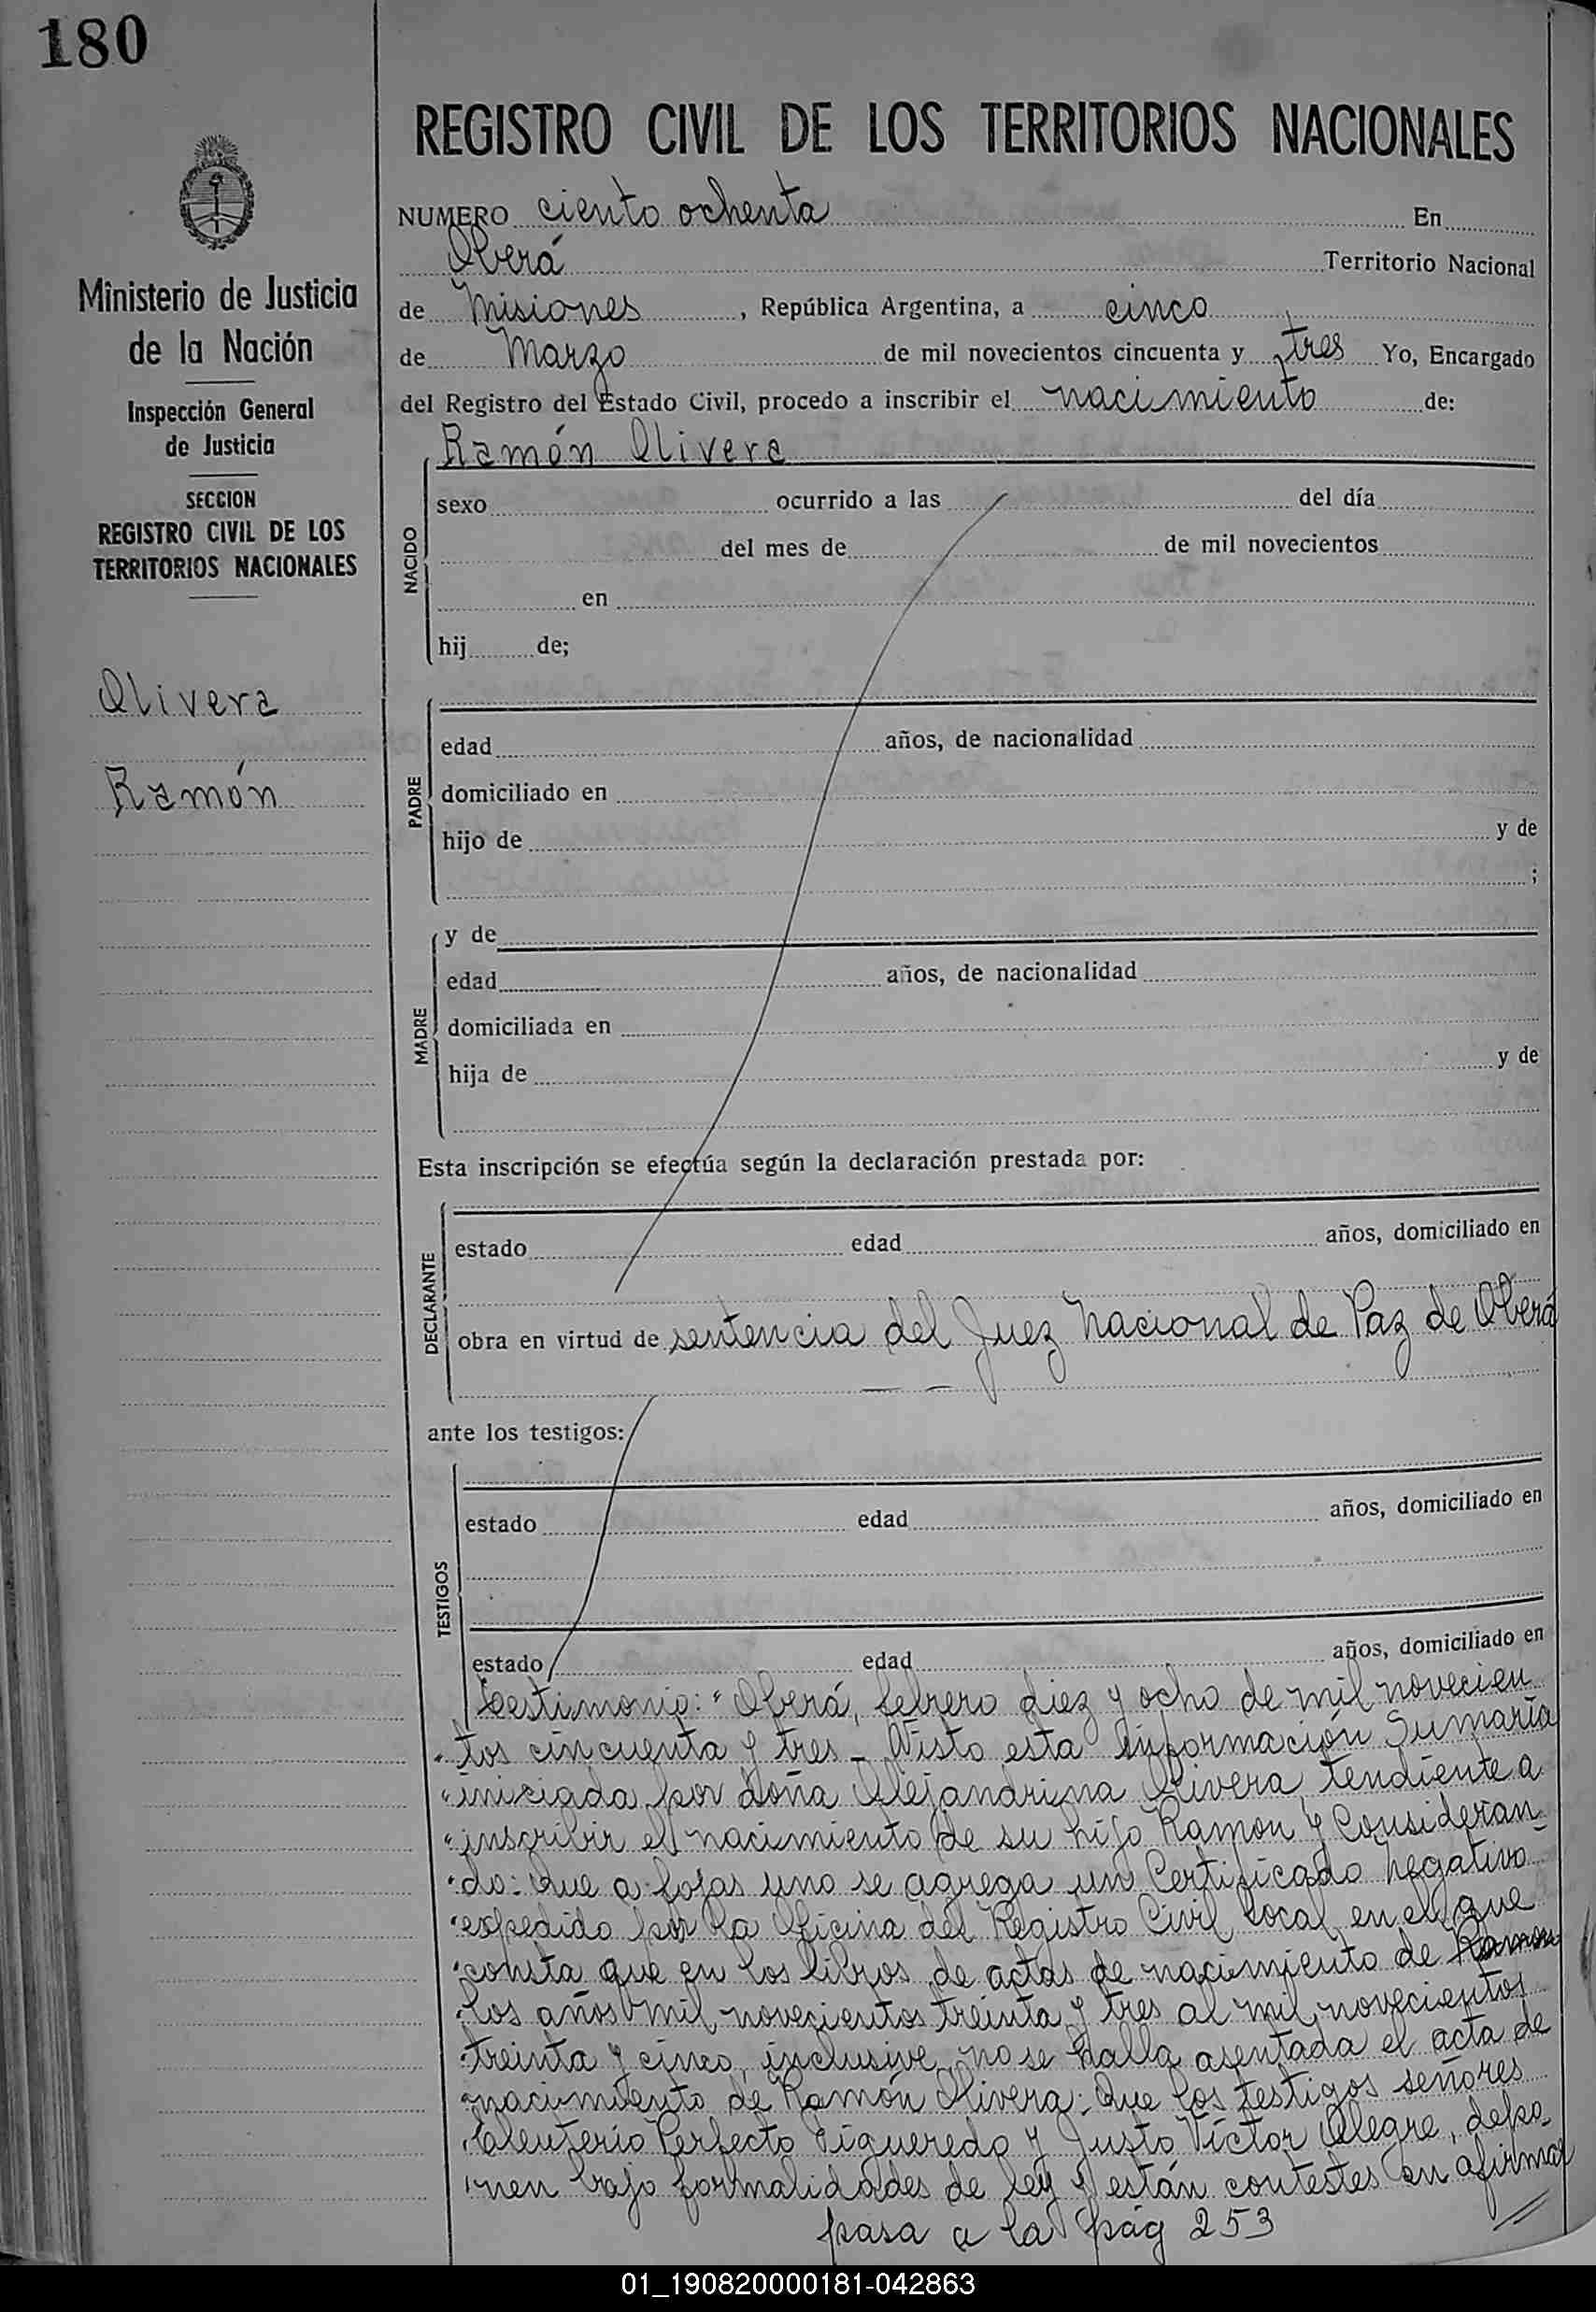 180
REGISTRO CIVIL DE LOS TERRITORIOS NACIONALES
Ministerio de Justicia
de la Nación
Inspección General
de Justicia
SECCION
REGISTRO CIVIL DE LOS
TERRITORIOS NACIONALES
Olivera
Ramón
NUMERO ciento ochenta En
Oberá Territorio Nacional
de Misiones, República Argentina, a cinco
de Marzo de mil novecientos cincuenta y tres Yo, Encargado
del Registro del Estado Civil, procedo a inscribir el nacimiento de:
Ramón Olivera
NACIDO
sexo ocurrido a las del día
del mes de de mil novecientos
en
hij de;
PADRE
edad años, de nacionalidad
domiciliado en
hijo de y de
;
MADRE
y de
edad años, de nacionalidad
domiciliada en
hija de y de
Esta inscripción se efectúa según la declaración prestada por:
DECLARANTE
estado edad años, domiciliado en
obra en virtud de sentencia del Juez Nacional de Paz de Oberá
ante los testigos:
TESTIGOS
estado edad años, domiciliado en
estado edad años, domiciliado en
Testimonio: "Oberá, febrero diez y ocho de mil novecien
"tos cincuenta y tres - Visto esta información Sumaria
"iniciada por doña Alejandrina Olivera, tendiente a
"inscribir el nacimiento de su hijo Ramon y Consideran
"do: Que a fojas uno se agrega un Certificado negativo
"expedido por la Oficina del Registro Civil local, en el que
"consta que en los libros de actas de nacimiento de Ramon
"los años mil novecientos treinta y tres al mil novecientos
"treinta y cinco, inclusive, no se halla asentada el acta de
"nacimiento de Ramón Olivera; Que los testigos señores
"Eleuterio Perfecto Figueredo y Justo Victor Alegre, depo-
"nen bajo formalidades de ley y están contestes en afirmar
pasa a la pág 253
01_190820000181-042863